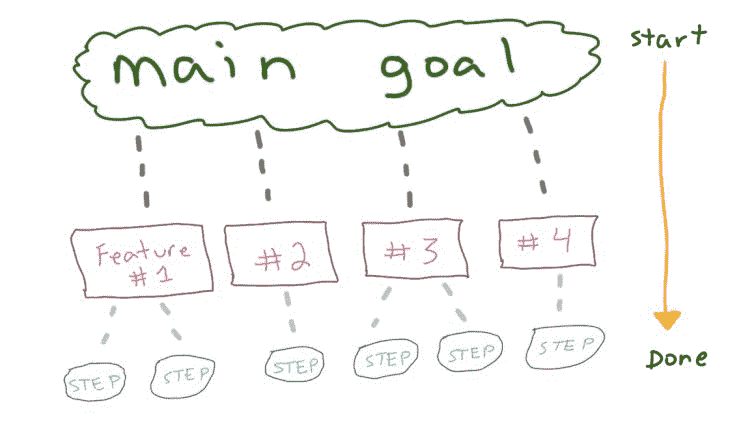 main goal
start
Feature
#1
#2
#3
#4
STEP
STEP
STEP
STEP
STEP
STEP
Done